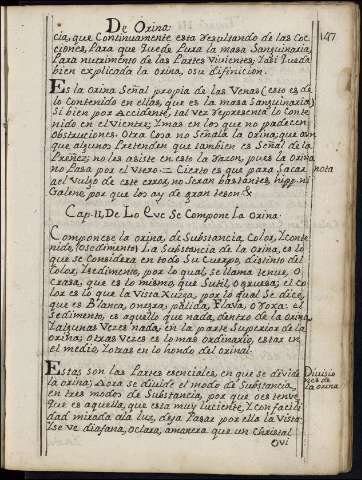 De Orina.
147
cia, que Continuamente esta resultando de las Coc
ciones, Para que quede Pura la masa Sanguinaria,
Para nutrimento de las Partes vivientes, y asi queda
bien explicada la orina, o su difinicion.
Es la orina Señal propia de las Venas (esto es de
lo Contenido en ellas, que es la masa Sanguinaria)
Si bien por accidente, tal vez representa lo Conte
nido en el vientre; y mas en los que no padecen
obstruciones. Otra cosa no Señala la orina; que aun
que algunos Pretenden que tambien es Señal de la
Preñez; no les asiste en esto la razon, pues la orina
no Pasa por el Utero. = Cierto es que para Sacar
nota
a el vulgo de este error no Seran bastantes hipp. ni
Galeno, por que los ay de gran teson &
Cap. II, De Lo Que Se Compone La Orina.
Componese la orina, de Substancia, Color, y Conte
nido, (o sedimento) La Substancia de la orina, es lo
que se Considera en todo Su Cuerpo, distinto del
Color, y sedimento, por lo qual se llama tenue, o
Crasa, que es lo mismo, que Sutil, o gruesa; el co
lor es lo que la Vista juzga, por lo qual Se dice,
que es Blanca, o negra; palida, flava, o roxa: el
Sedimento, es aquello que nada, dentro de la orina
y algunas Veces nada, en la parte Superior de la
orina; otras veces es lo mas ordinario, estar en
el medio, y otras en lo hondo del orinal.
Estas son las Partes esenciales, en que se divide
Divisio
nes de
la orina
la orina; Aora se divide el modo de Substancia,
en tres modos de Substancia, por que o es tenue,
que es aquella, que esta muy luciente, y con facili
dad mirada a la luz, deja Pasar por ella la Vista
y se ve diafana, o clara, a manera que un Christal